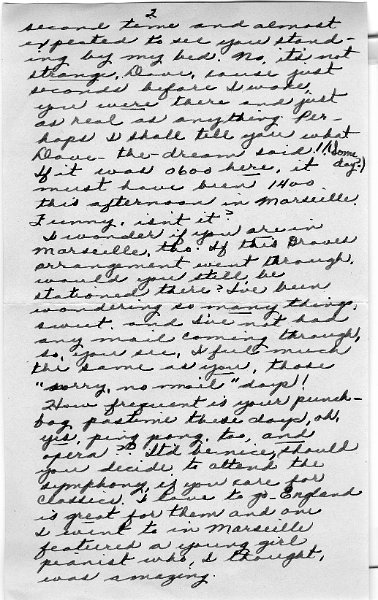 2
second time and almost
expected to see you stand-
ing by my bed. No, it's not
strange, Dave, cause just
seconds before I woke,
you were there and just
as real as anything. Per-
haps I shall tell you what
Dave-the-dream said!! (Some
day?)
If it was 0600 here, it
must have been 1400
this afternoon in Marseille.
Funny, isn't it?
I wonder if you are in
Marseille, tho. If this Graves
arrangement went through,
would you still be
stationed there? I've been
wondering so many things,
sweet, and I've not had
any mail coming through,
so, you see, I feel much
the same as you, those
"sorry, no mail" days!
How frequent is your punch-
bag pastime these days, oh,
yes, ping pong, too, and
opera? It'd be nice, should
you decide to attend the
symphony, if you care for
classics. I love to go. England
is great for them and one
I went to in Marseille
featured a young girl
pianist who, I thought,
was amazing.